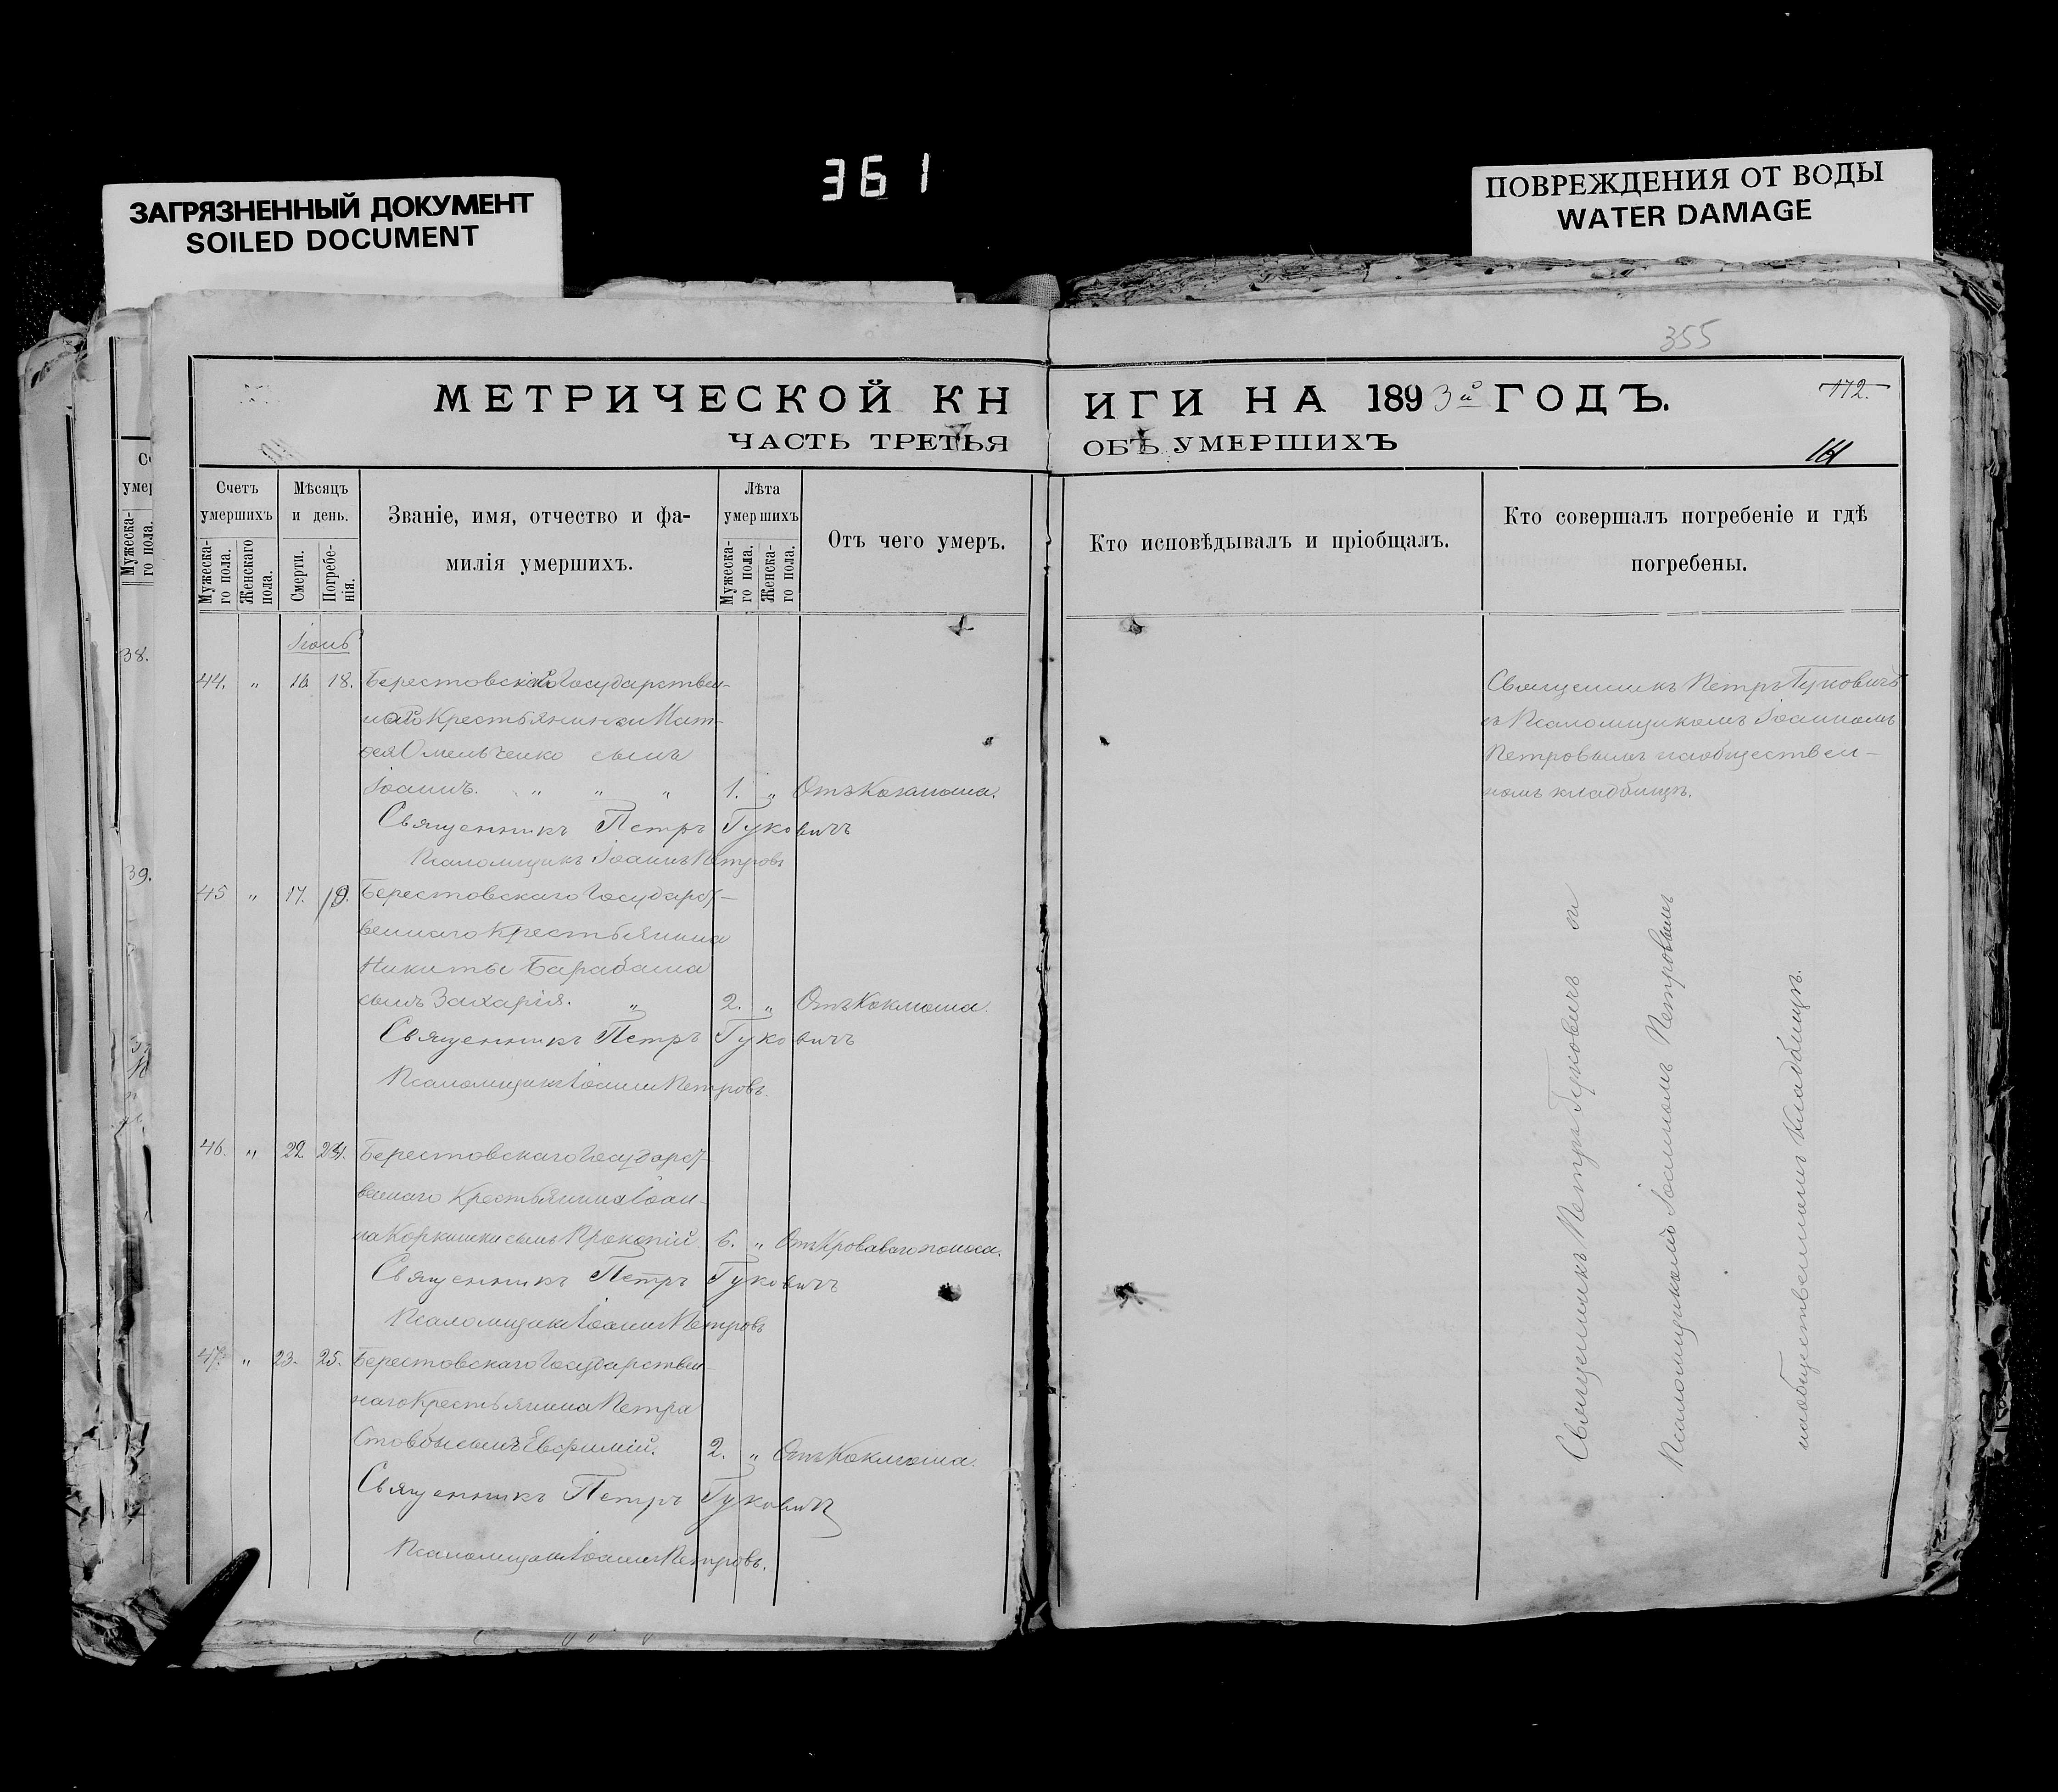 361
ЗАГРЯЗНЕННЫЙ ДОКУМЕНТ
SOILED DOCUMENT
ПОВРЕЖДЕНИЯ ОТ ВОДЫ
WATER DAMAGE
355
МЕТРИЧЕСКОЙ КНИГИ НА 1893й ГОДЪ.
112.
ЧАСТЬ ТРЕТЬЯ ОБЪ УМЕРШИХЪ
161
Счетъ умершихъ
Мужеска-го пола.
Женскаго пола.
Мѣсяцъ и день.
Смерти.
Погребе-нія.
Званіе, имя, отчество и фа-
милія умершихъ.
Лѣта умершихъ
Мужеска-го пола.
Женска-го пола.
Отъ чего умеръ.
Кто исповѣдывалъ и пріобщалъ.
Кто совершалъ погребеніе и гдѣ
погребены.
38.
39.
Іюнь
44. " 16 18. Берестовскаго Государствен-
наго Крестьянина Мат-
фея Омельченко сынъ
Іоаннъ. " " " 1. " Отъ Коклюша.
Священникъ Петръ Гуковичъ
Псаломщикъ Іоаннъ Петровъ
45 " 17. 19. Берестовскаго Государст-
веннаго Крестьянина
Никиты Барабаша
сынъ Захарія. " 2. " Отъ Коклюша.
Священникъ Петръ Гуковичъ
Псаломщикъ Іоаннъ Петровъ.
46. " 22 24. Берестовскаго Государст-
веннаго Крестьянина Іоан-
на Коркишки сынъ Прокопій 6. " Отъ Кроваваго поноса.
Священникъ Петръ Гуковичъ
Псаломщикъ Іоаннъ Петровъ
47. " 23. 25. Берестовскаго Государствен-
наго Крестьянина Петра
Стовбы сынъ Евфимій. 2. " Отъ Коклюша.
Священникъ Петръ Гуковичъ
Псаломщикъ Іоаннъ Петровъ.
Священникъ Петръ Гуковичъ
съ Псаломщикомъ Іоанномъ
Петровымъ на обществен-
номъ кладбищѣ.
Священникъ Петръ Гуковичъ съ
Псаломщикомъ Іоанномъ Петровымъ
на общественномъ кладбищѣ.